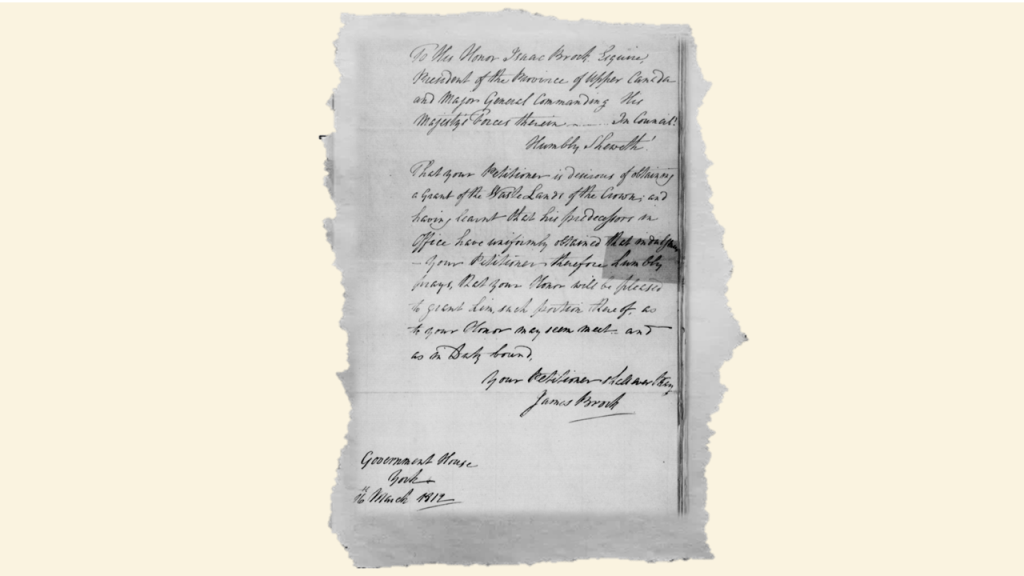 To His Honor Isaac Brock Esquire,
President of the Province of Upper Canada
and Major General Commanding His
Majesty's Forces therein ........ In Council!
Humbly Sheweth!
That your Petitioner is desirous of obtaining
a Grant of the Waste Lands of the Crown; and
having learnt that his predecessors in
Office have uniformly obtained that
– Your Petitioner therefore humbly
prays, that your Honor will be pleased
to grant him, such portion thereof, as
to your Honor may seem meet – and
as in Duty bound,
Your Petitioner shall ever Pray
James Brock
Government House
York
March 1812